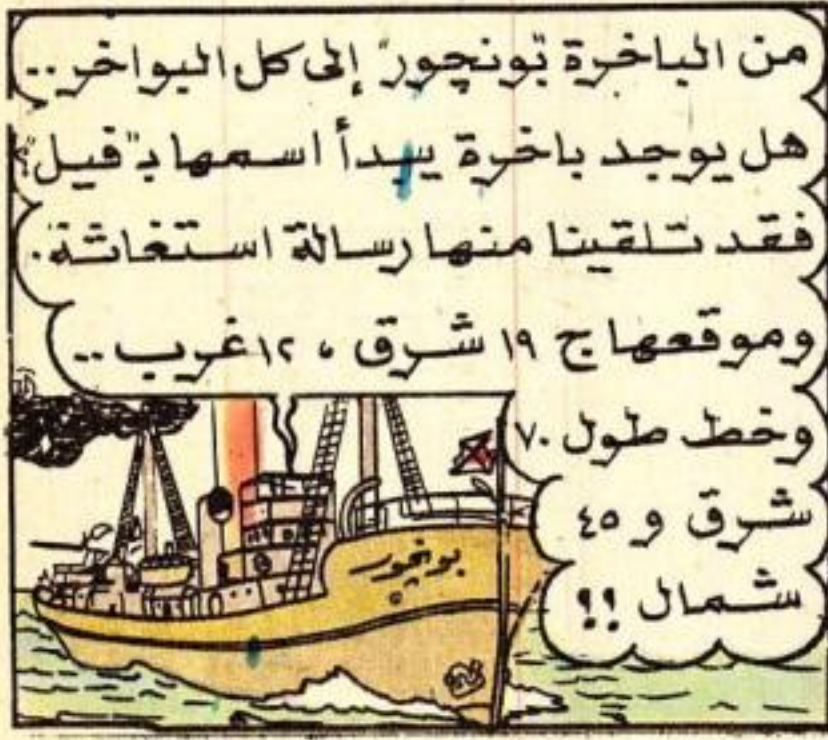 من الباخرة "بونچور" إلى كل البواخر..
هل يوجد باخرة يبدأ اسمها بـ "فيل"؟
فقد تلقينا منها رسالة استغاثة.
وموقعها ج ١٩ شرق ، ١٢ غرب..
وخط طول ٧٠
شرق و ٤٥
شمال !!
بونچور